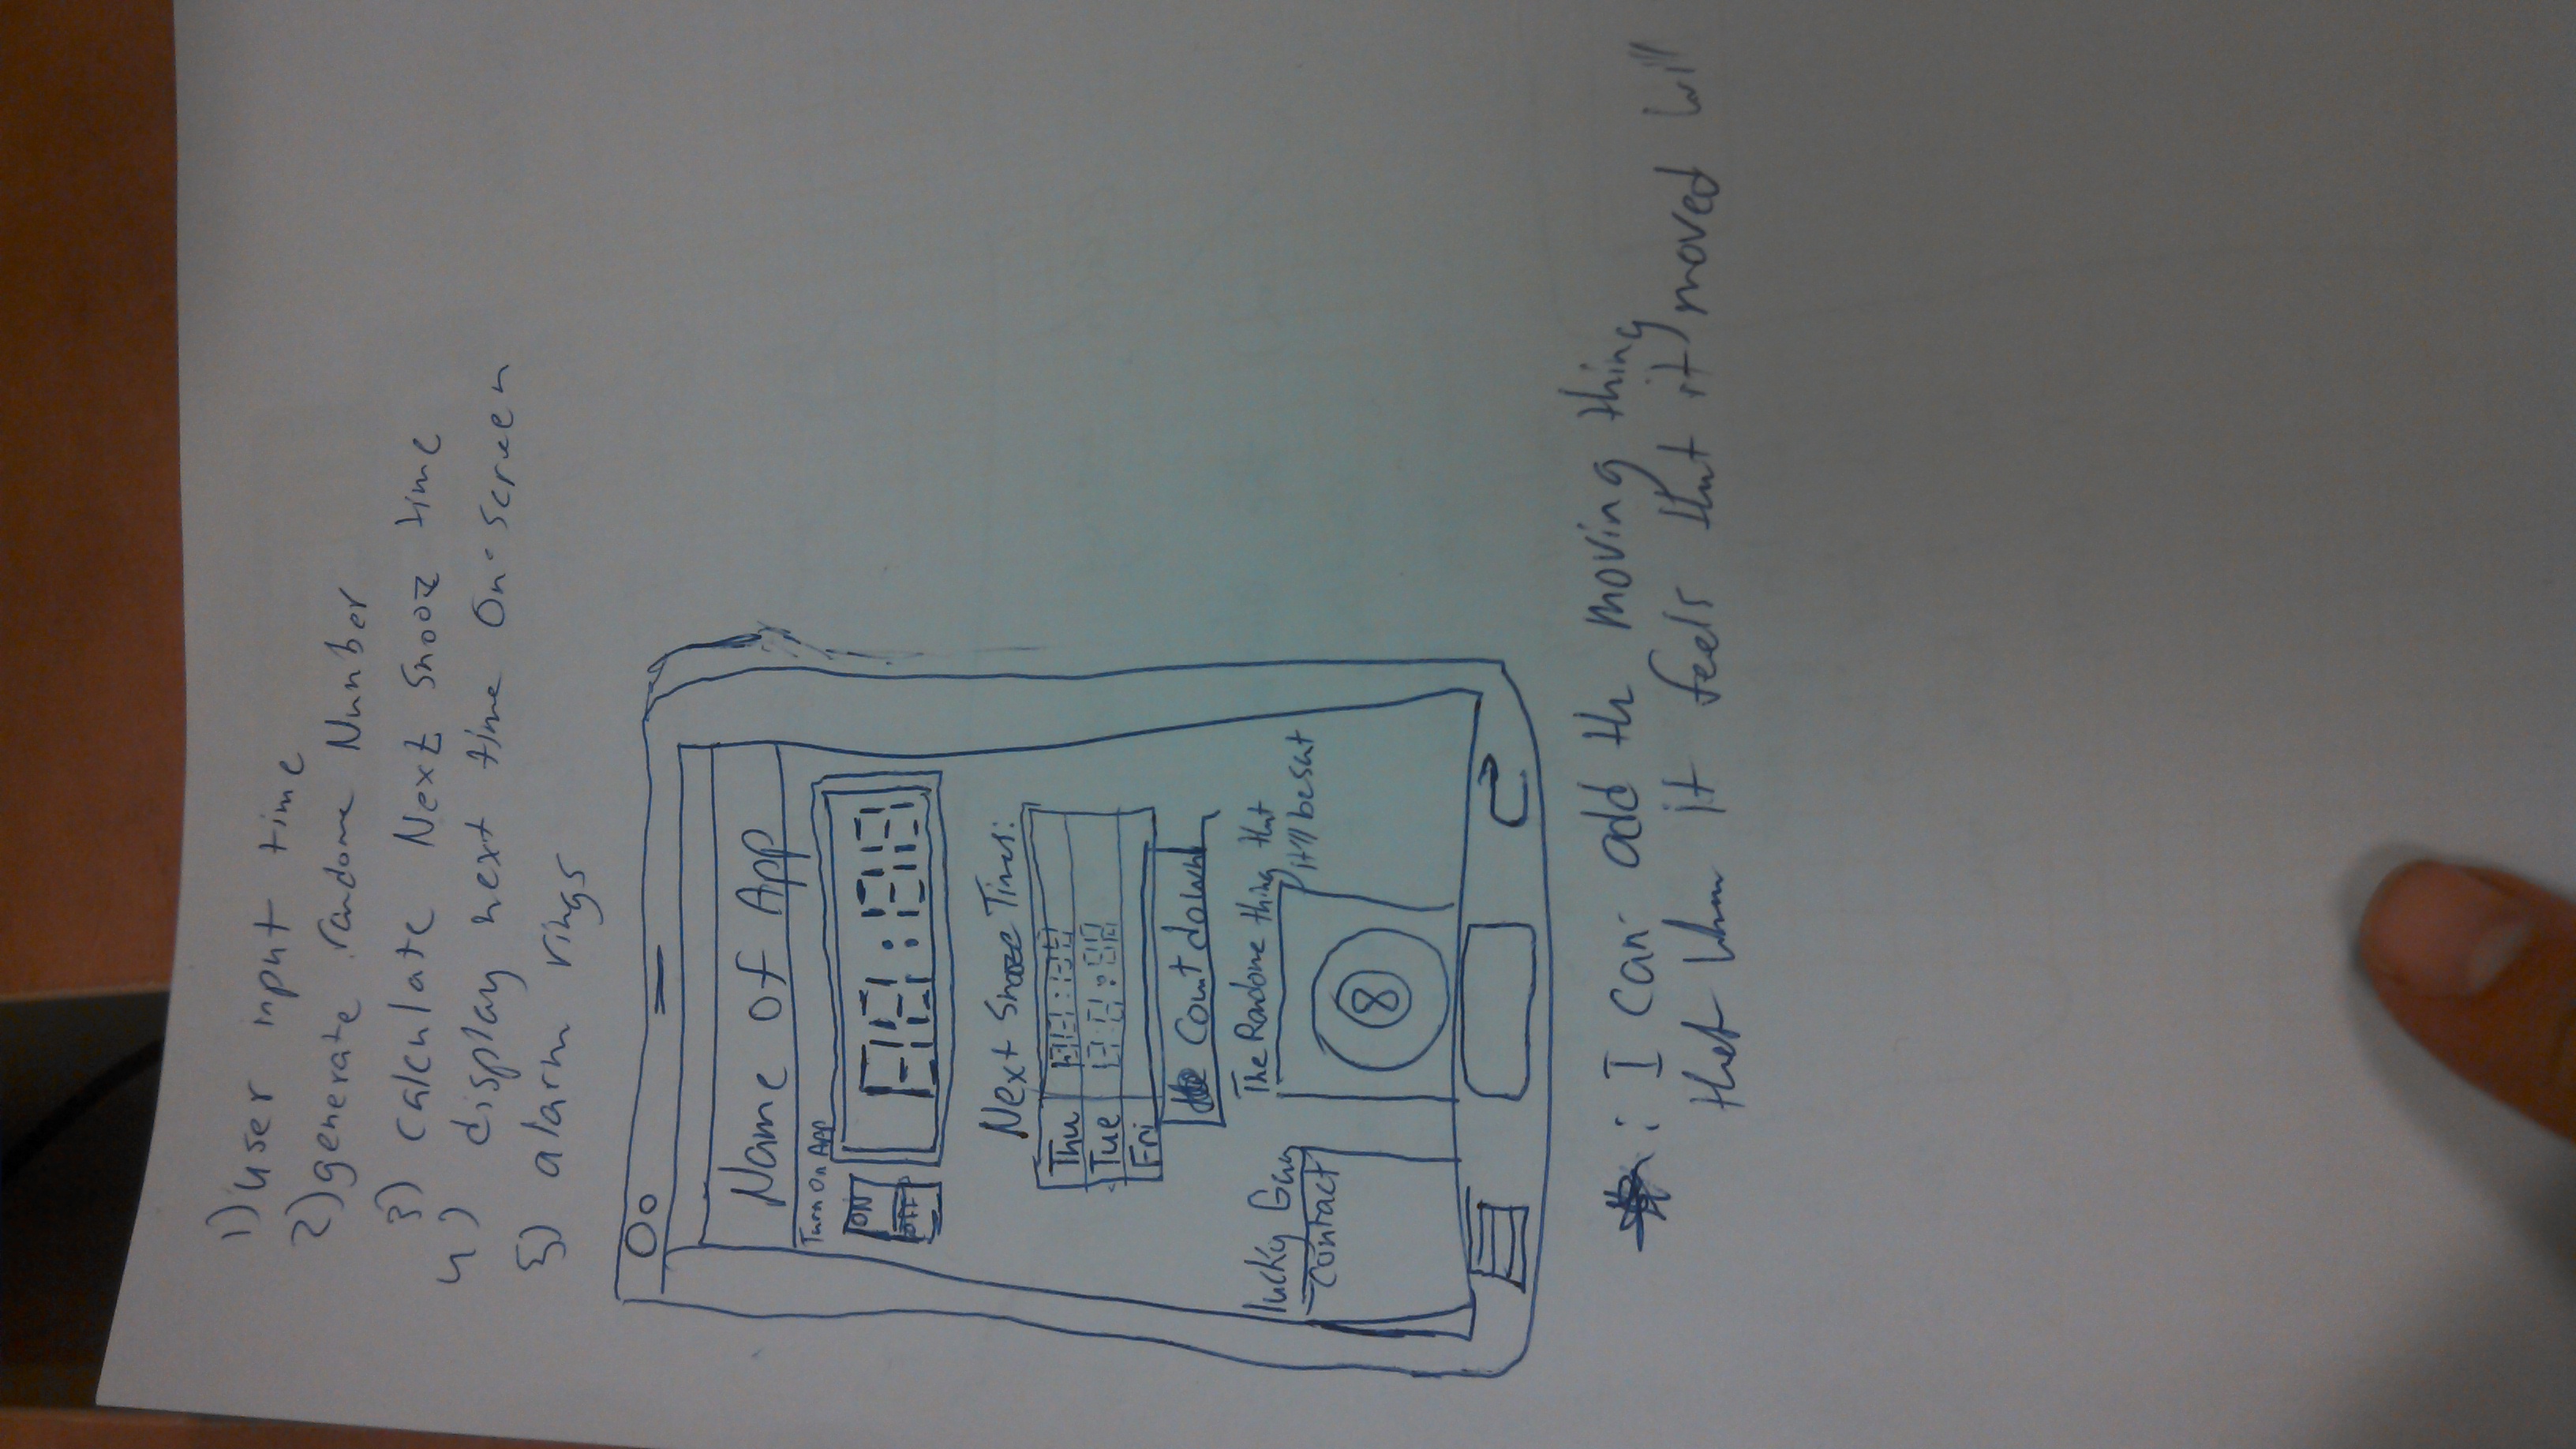 1) user input time
2) generate randome Number
3) calculate Next Snooz time
4) display next time On-screen
5) alarm rings
Name of App
Turn On App
ON
OFF
88:88
Next Snooze Times:
Thu 88:88
Tue 88:88
Fri
Countdown
lucky Guy
Contact
The Randome thing that
it'll be set
8
: I can add the moving thing
that when it feels that it moved will